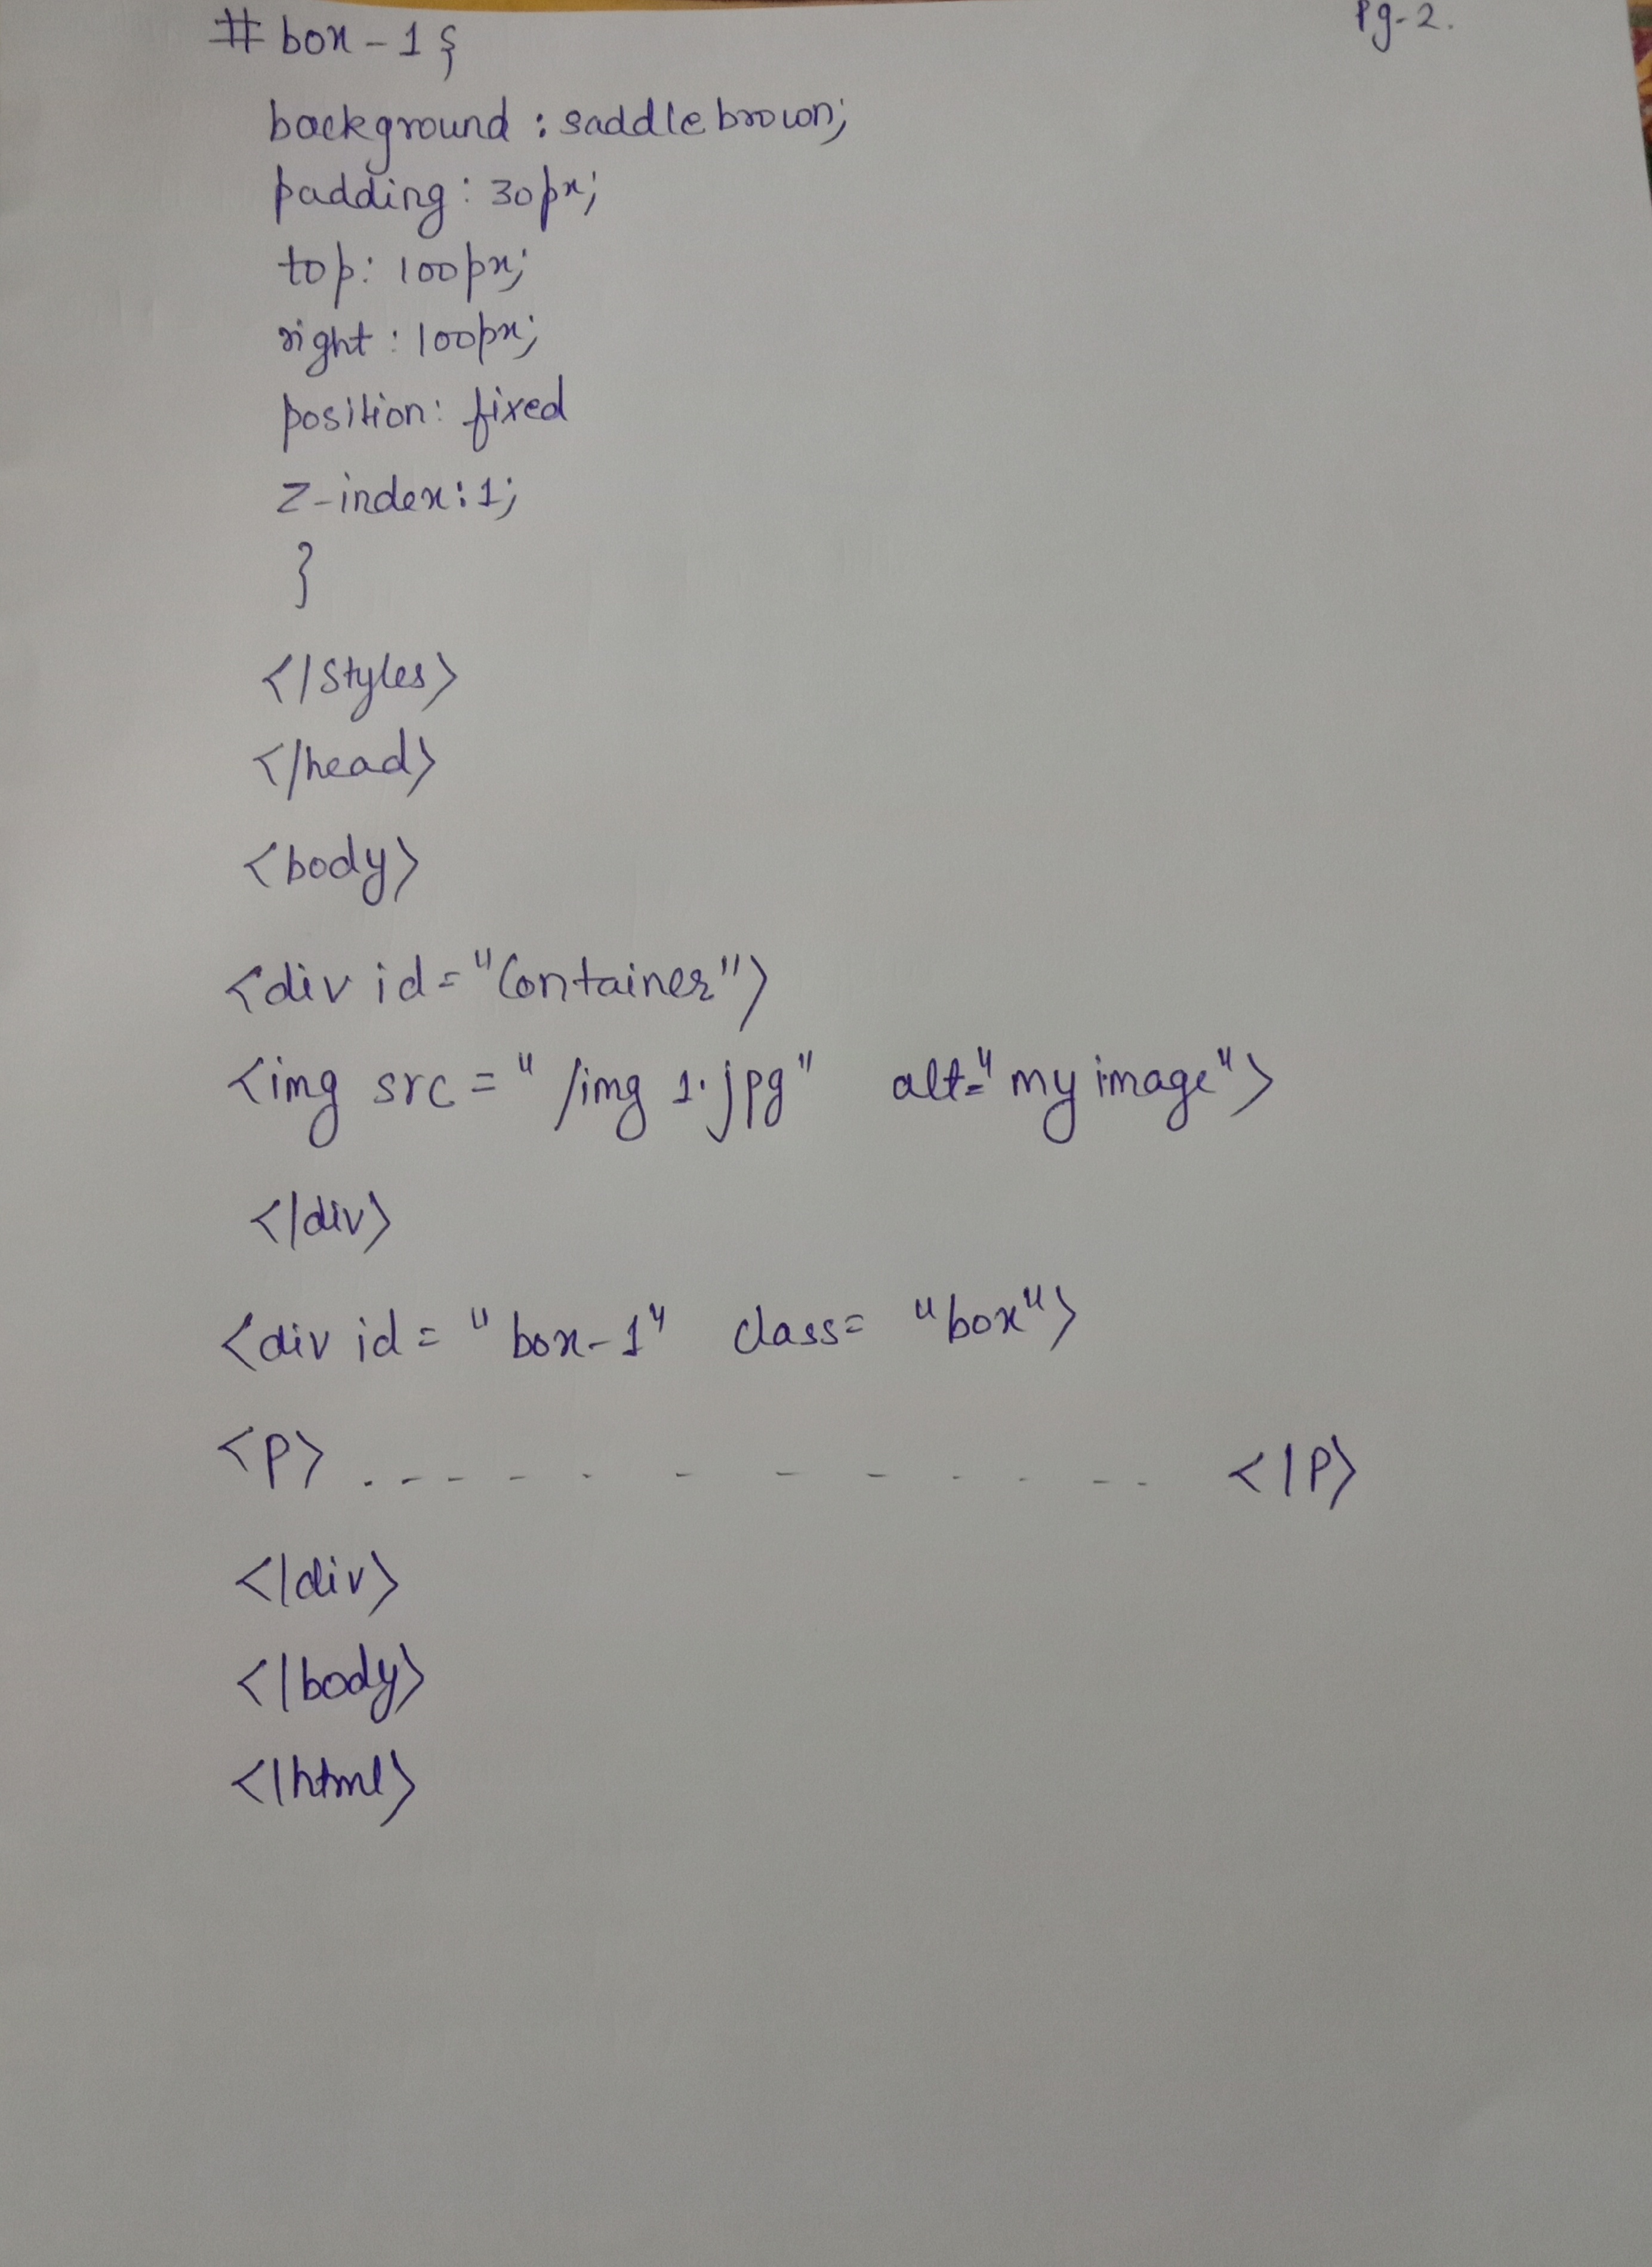 Pg-2.
#box-1{
background : saddle brown;
padding: 30px;
top: 100px;
right: 100px;
position: fixed
z-index: 1;
}
</styles>
</head>
<body>
<div id="Container">
<img src="/img 1.jpg" alt="my image">
</div>
<div id="box-1" class="box">
<P> . - - - - - - - - - - - - </P>
</div>
</body>
</html>